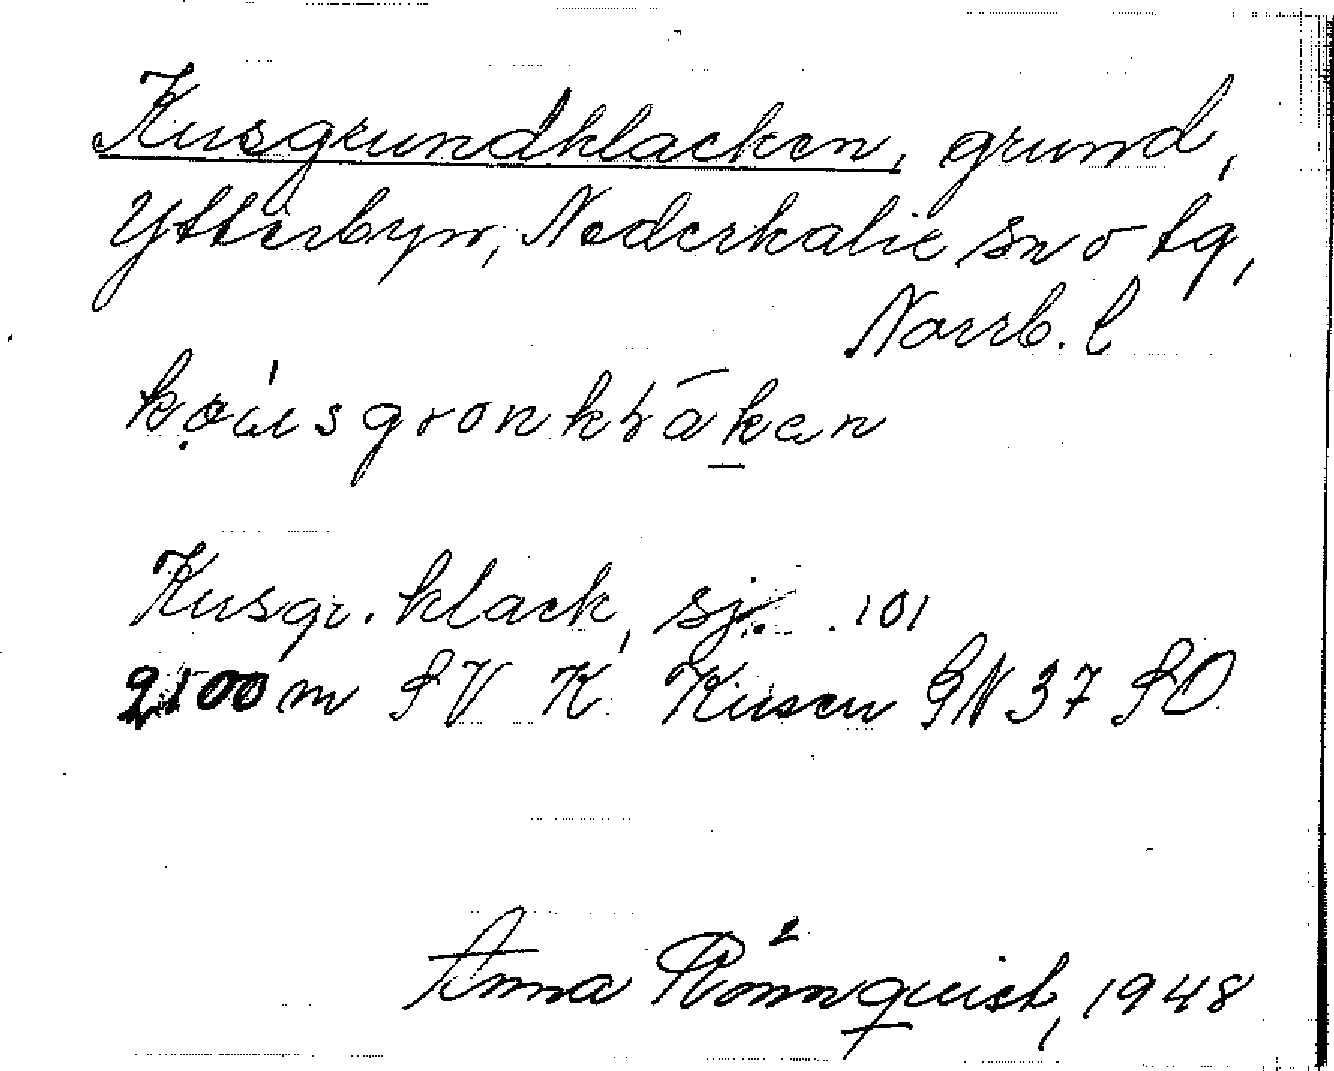 Kusgrundklacken, grund,
Ytterbyn, Nederkalix sn o tg,
Norrb. l
Kusgr. klack, sj. 101
2100 m SV K Kusen GN 37 SO
Anna Rönnquist, 1948